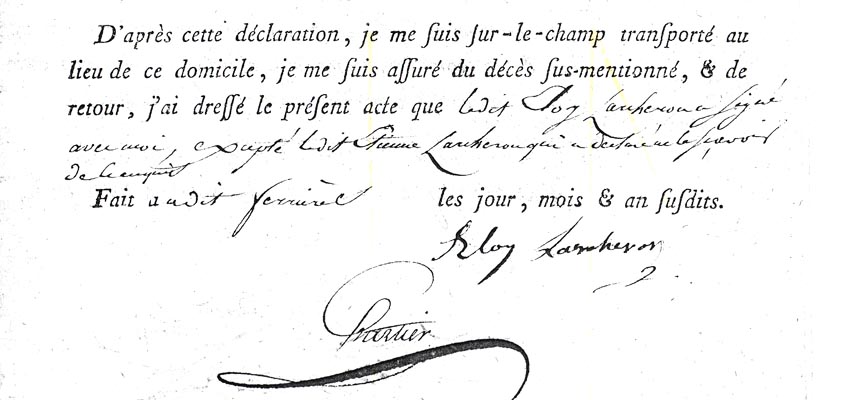 D'après cette déclaration, je me ſuis ſur-le-champ tranſporté au
lieu de ce domicile, je me ſuis aſſuré du décès ſus-mentionné, & de
retour, j'ai dreſſé le préſent acte que ledit Eloy Larcheron a ſigné
avec moi, excepté ledit Etienne Larcheron qui a déclaré ne le ſçavoir
de ce enquis
Fait audit ferrieres les jour, mois & an ſuſdits.
Eloy Larcheron